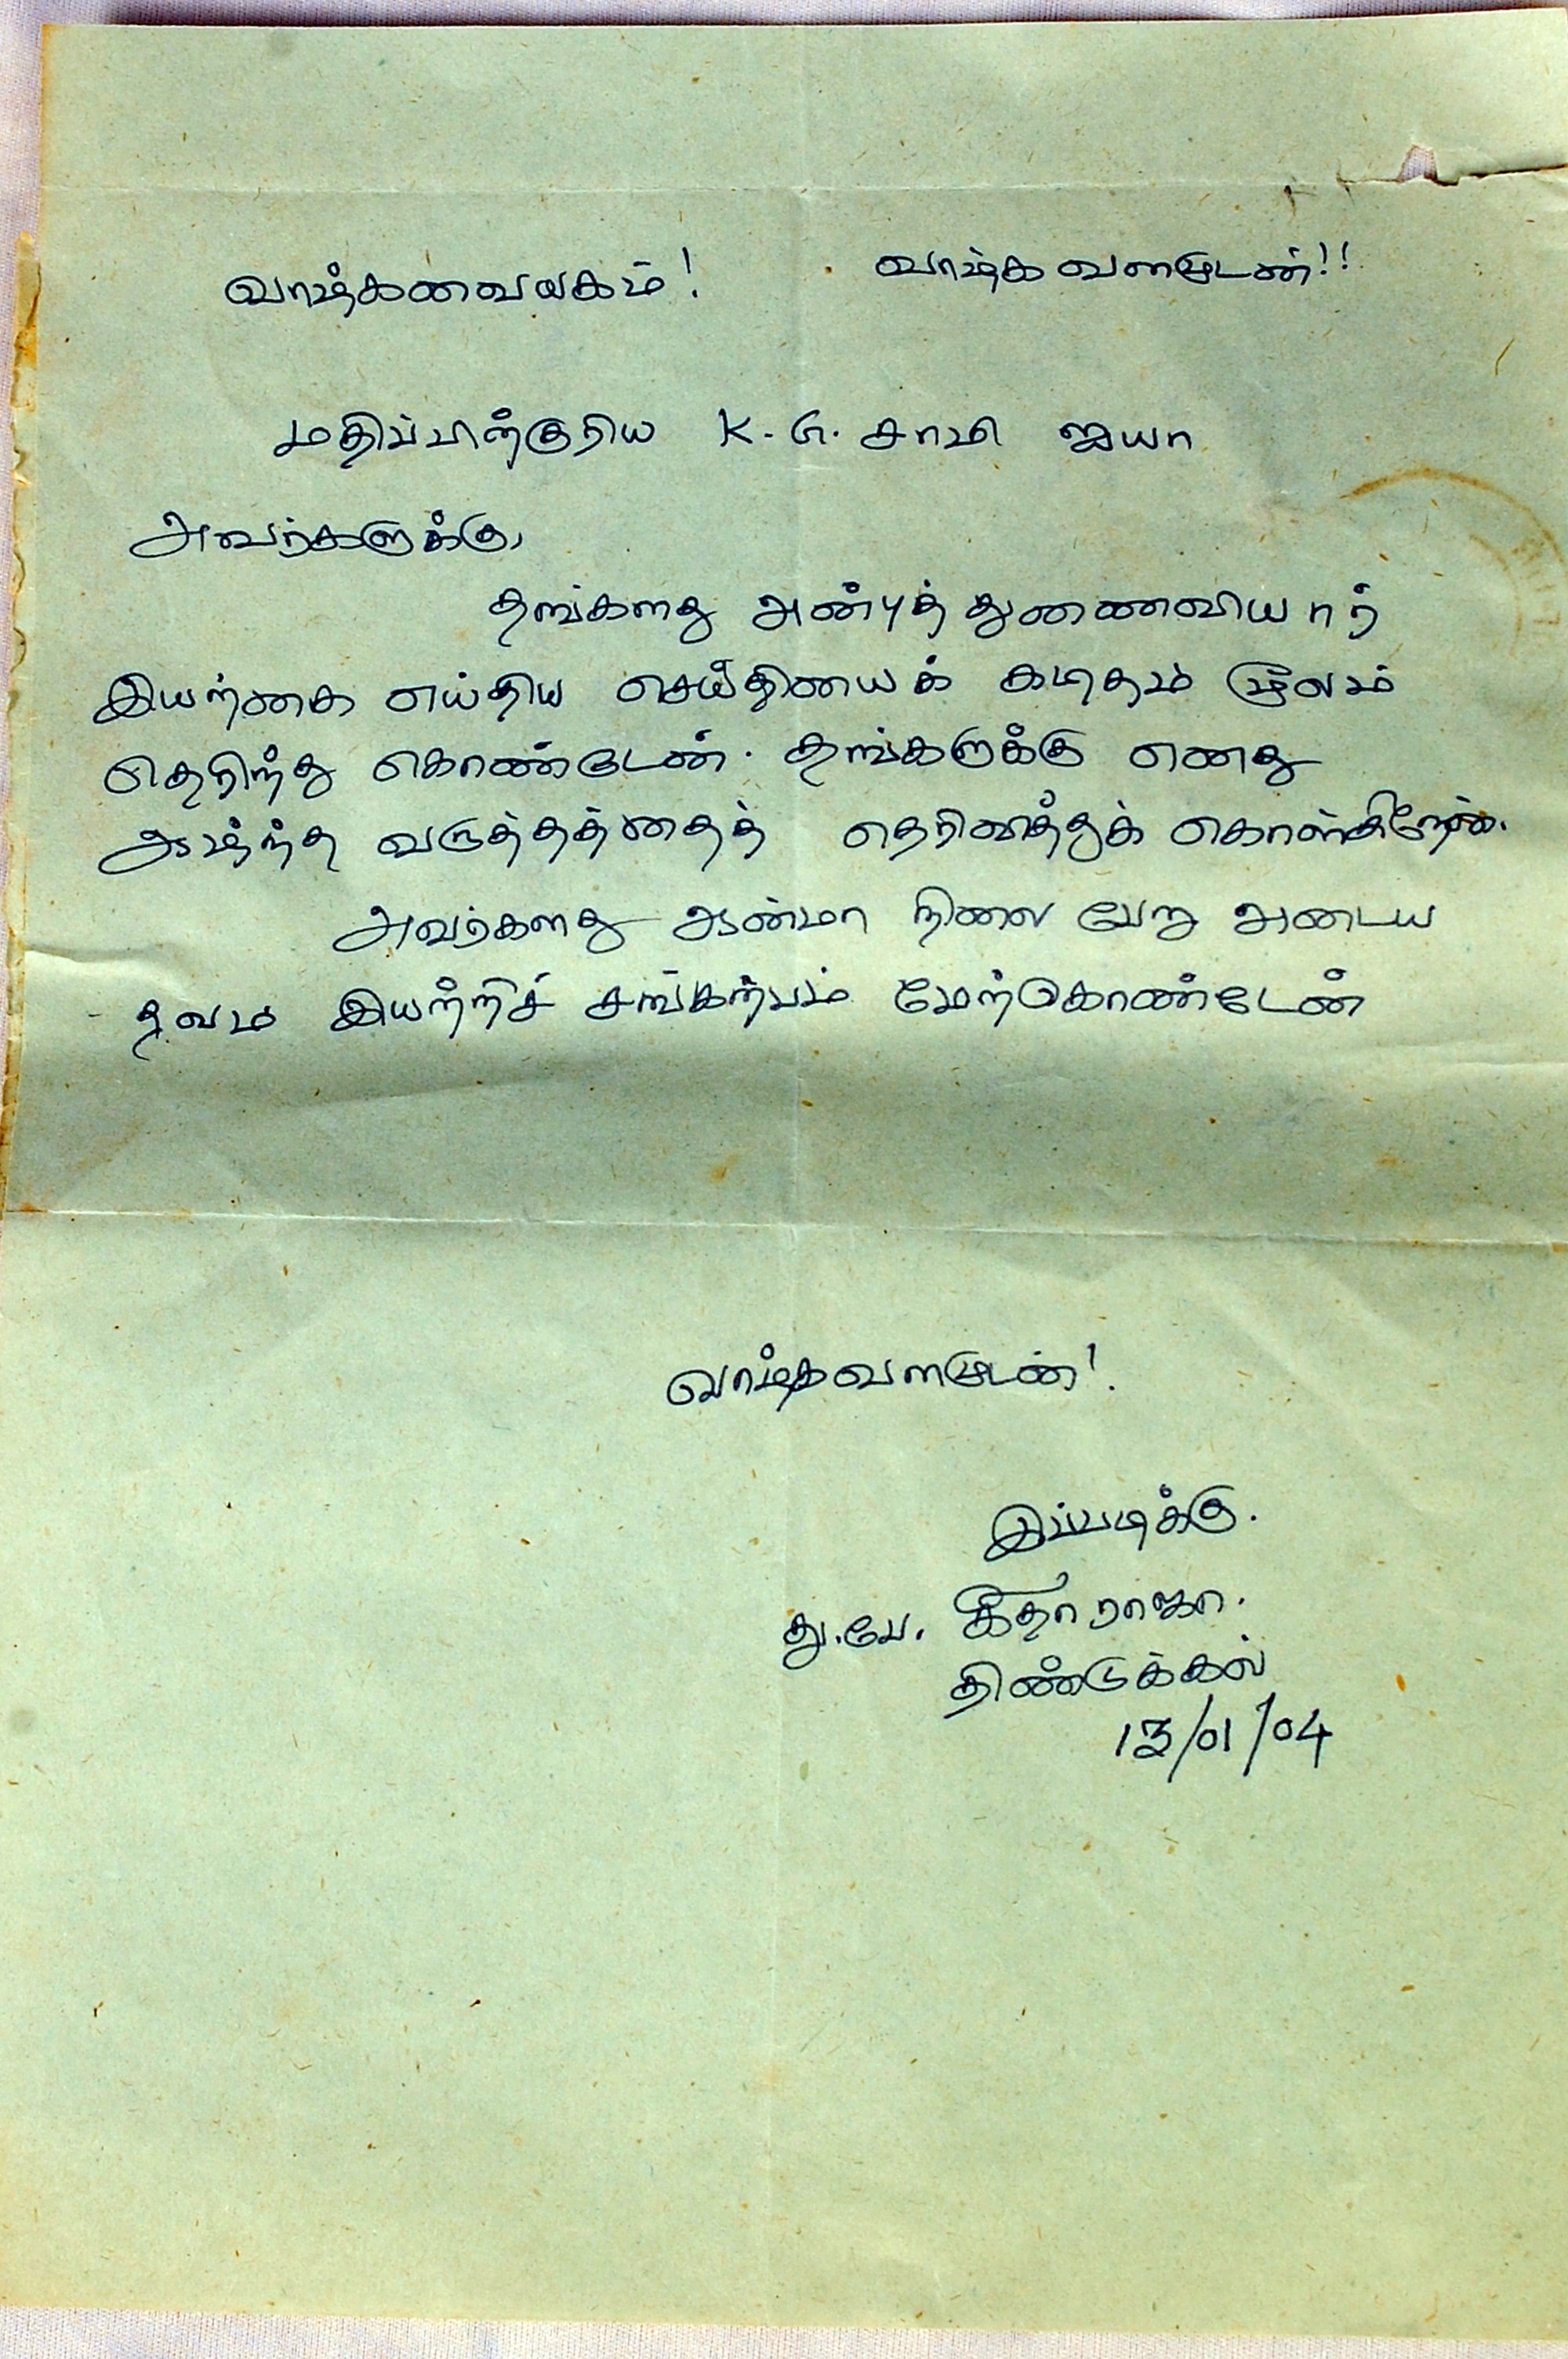 வாழ்கவையகம்! வாழ்க வளமுடன்!!
மதிப்பிற்குரிய K. G. சாமி ஐயா
அவர்களுக்கு,
தங்களது அன்புத் துணைவியார்
இயற்கை எய்திய செய்தியைக் கடிதம் மூலம்
தெரிந்து கொண்டேன். தங்களுக்கு எனது
ஆழ்ந்த வருத்தத்தைத் தெரிவித்துக் கொள்கிறேன்.
அவர்களது ஆன்மா நிலை பேறு அடைய
தவம் இயற்றிச் சங்கற்பம் மேற்கொண்டேன்
வாழ்கவளமுடன்!
இப்படிக்கு.
து.வே. கீதாராஜா.
திண்டுக்கல்
13/01/04